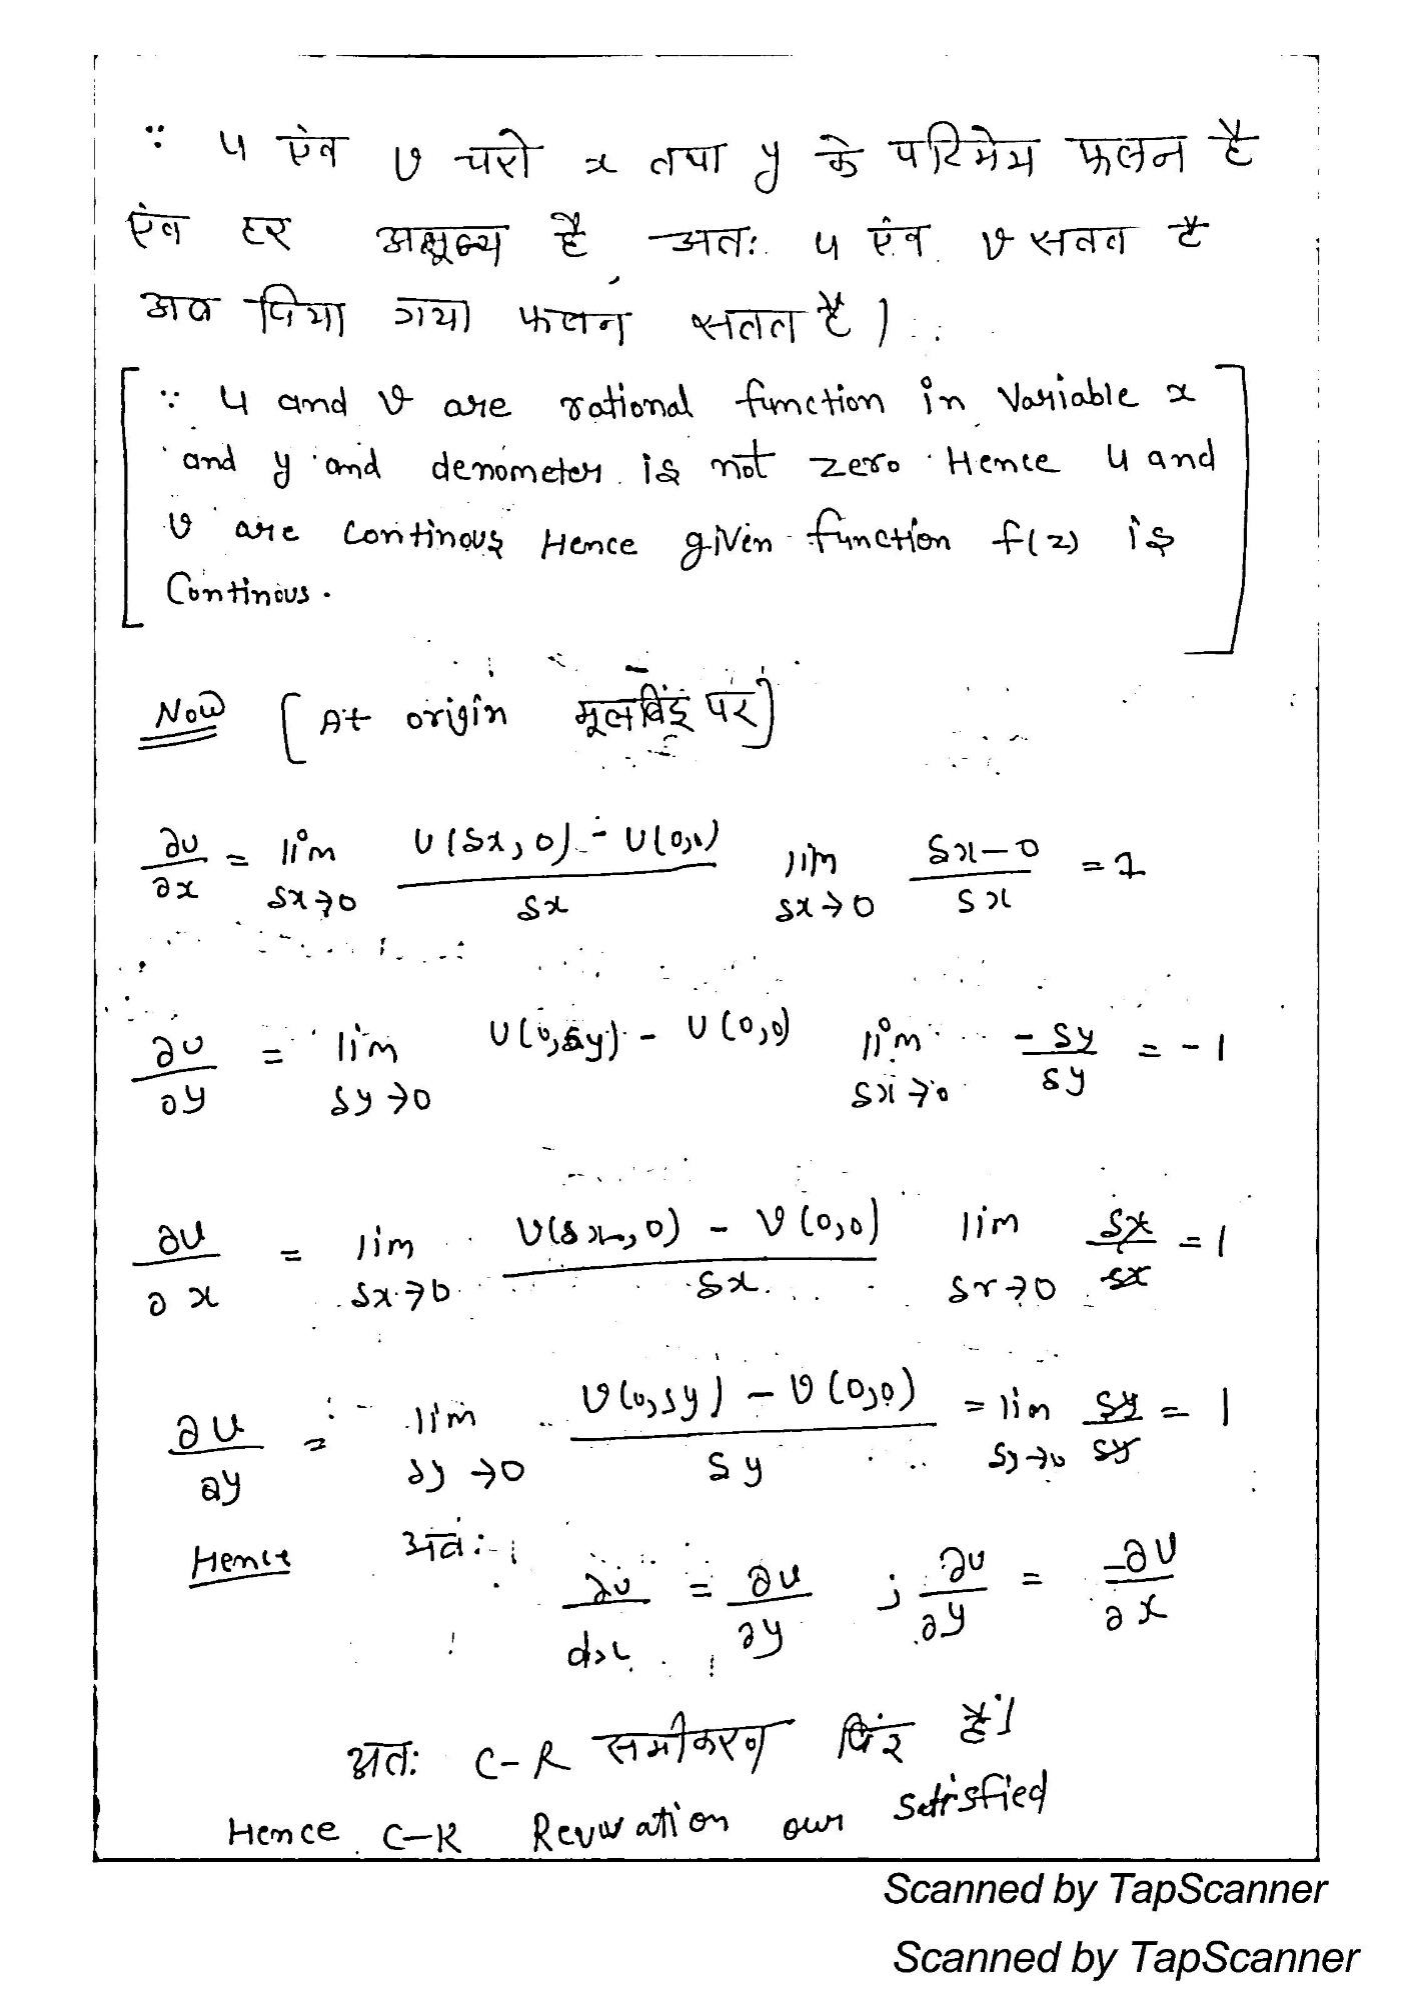 ∵ u एंव v चरो x तथा y के परिमेय फलन है
एंव हर अशून्य है अतः u एंव v सतत है
अब दिया गया फलन सतत है।
[∵ u and v are rational function in Variable x
and y and denometer is not zero Hence u and
v are continous Hence given function f(z) is
Continous.]
Now [At origin मूलबिंदु पर]
∂u/∂x = lim δx→0 (U(δx,0) - U(0,0))/δx lim δx→0 (δx-0)/δx = 1
∂u/∂y = lim δy→0 U(0,δy) - U(0,0) lim δx→0 -δy/δy = -1
∂v/∂x = lim δx→0 (V(δx,0) - V(0,0))/δx lim δx→0 δx/δx = 1
∂v/∂y = lim δy→0 (V(0,δy) - V(0,0))/δy = lim δy→0 δy/δy = 1
Hence अतः
∂u/dx = ∂v/∂y ; ∂u/∂y = -∂v/∂x
अतः C-R समीकरण है।
Hence C-R our satisfied
Scanned by TapScanner
Scanned by TapScanner